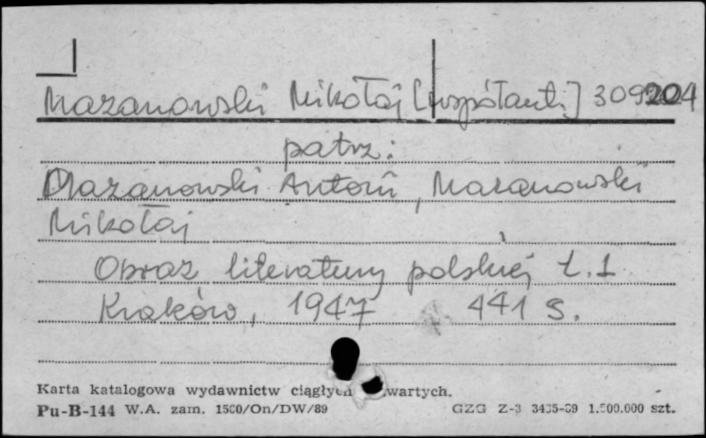 Mazanowski Mikołaj [współaut.] 309204
patrz:
Mazanowski Antoni, Mazanowski
Mikołaj
Obraz literatury polskiej t. 1
Kraków, 1947 441 s.
Karta katalogowa wydawnictw ciągłych wartych.
Pu-B-144 W.A. zam. 1500/On/DW/89 GZG Z-3 3435-89 1.500.000 szt.